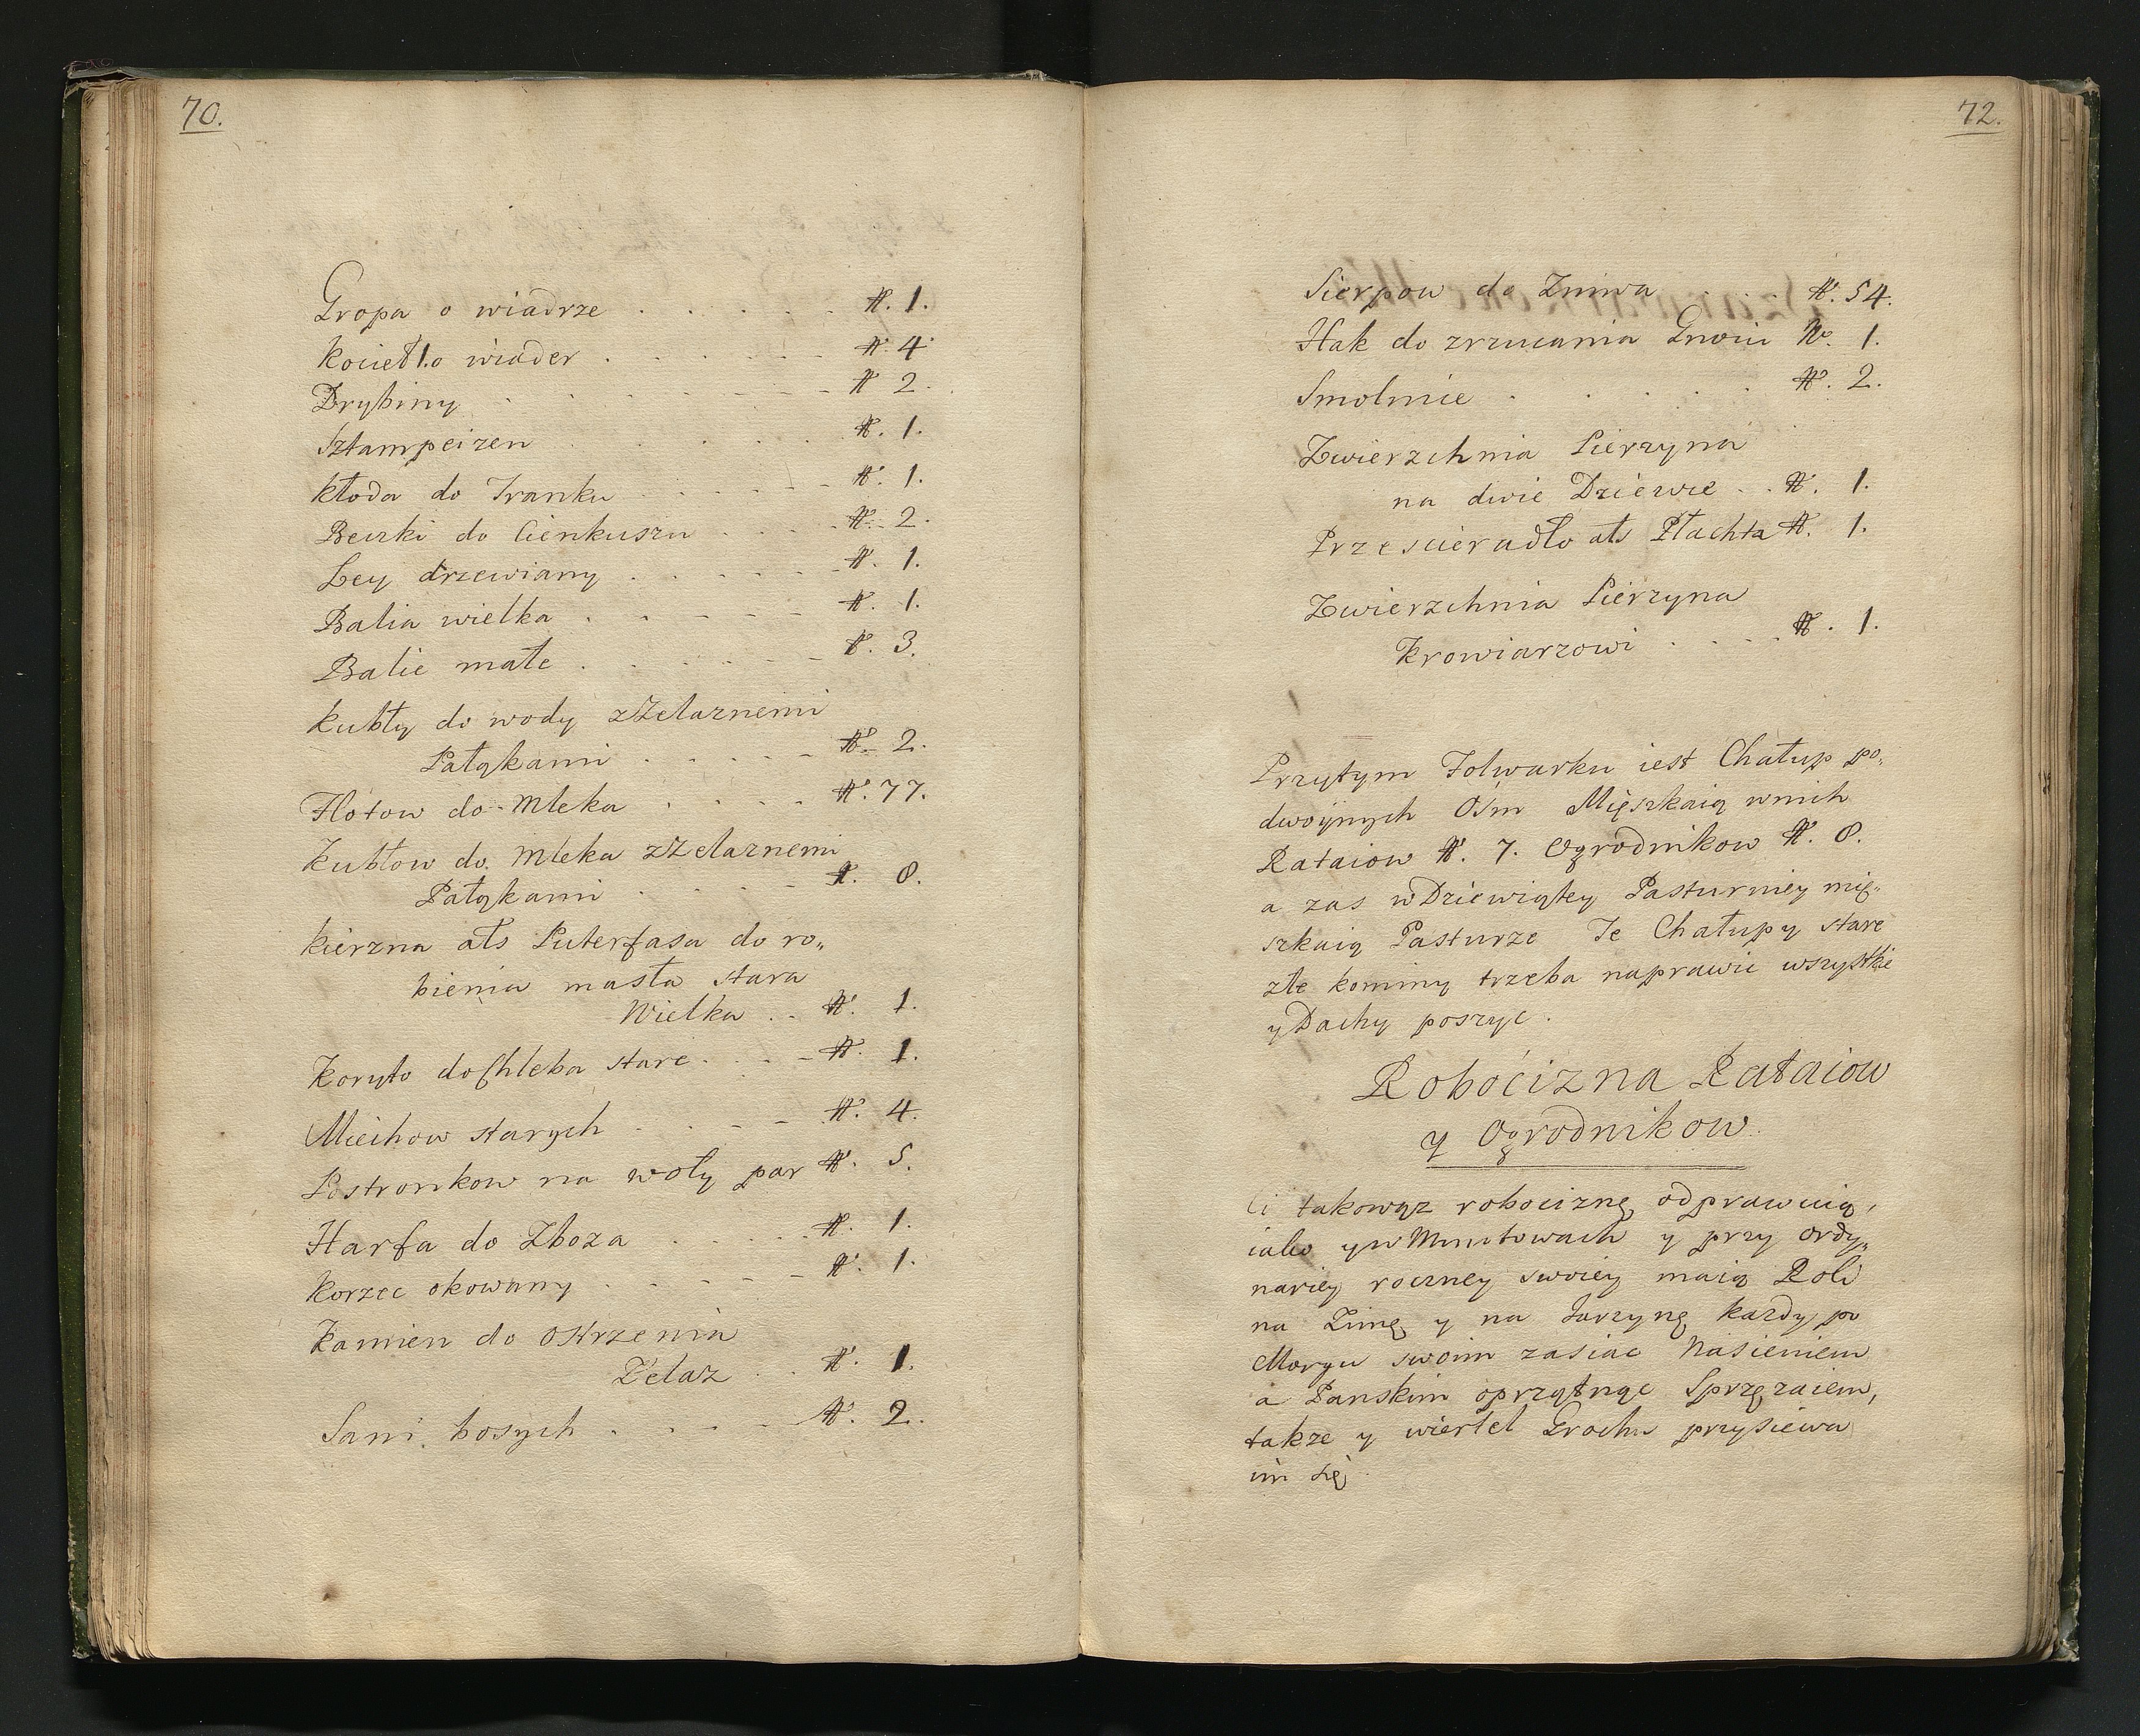 70.
Gropa o wiadrze . . . . . № 1.
Kocieł 1. o wiader . . . . . № 4
Drybiny . . . . . . № 2.
Sztampeizen . . . . . № 1.
Kłoda do Tranku . . . . . № 1.
Beczki do Cienkuszu . . . . № 2.
Ley drzewiany . . . . . № 1.
Balia wielka . . . . . № 1.
Balie małe . . . . . . № 3.
Kubły do wody zZelaznemi
Pałąkami . . . . . № 2.
Flotow do Mleka . . . . № 77.
Kubłow do Mleka zZelaznemi
Pałąkami . . . . . № 8.
Kierzna als Puterfasa do ro„
bienia masła stara
Wielka . . № 1.
Koryto do Chleba stare . . . № 1.
Miechow starych . . . . № 4.
Postronkow na woły par № 5.
Harfa do Zboza . . . . . № 1.
Korzec okowany . . . . . № 1.
Kamien do Ostrzenia
Żelaz . . № 1.
Sani bosych . . . . № 2.
72.
Sierpow do Zniwa . . . № 54.
Hak do zrzucania Gnoiu № 1.
Smolnice . . . . . № 2.
Zwierzchnia Pierzyna
na dwie Dziewce . . № 1.
Przescieradło als Płachta № 1.
Zwierzchnia Pierzyna
Krowiarzowi . . . . № 1.
Przytym Folwarku iest Chałup po„
dwoynych Ośm Mięszkaią wnich
Rataiow № 7. Ogrodnikow № 8.
a zas wDziewiątey Pasturniey mię„
szkaią Pasturze Te Chałupy stare
złe kominy trzeba naprawic wszystkie
y Dachy poszyc.
Robocizna Rataiow
y Ogrodnikow.
Ci takowąz robociznę odprawuią,
iako y w y przy ordy„
nariey roczney swoiey maią Roli
na Zimę y na Jarzynę kazdy po
Morgu swoim zasiac Nasieniem
a Panskim oprzątnąc Sprzęzaiem,
takze y wiertel Grochu przysiewa
im się.